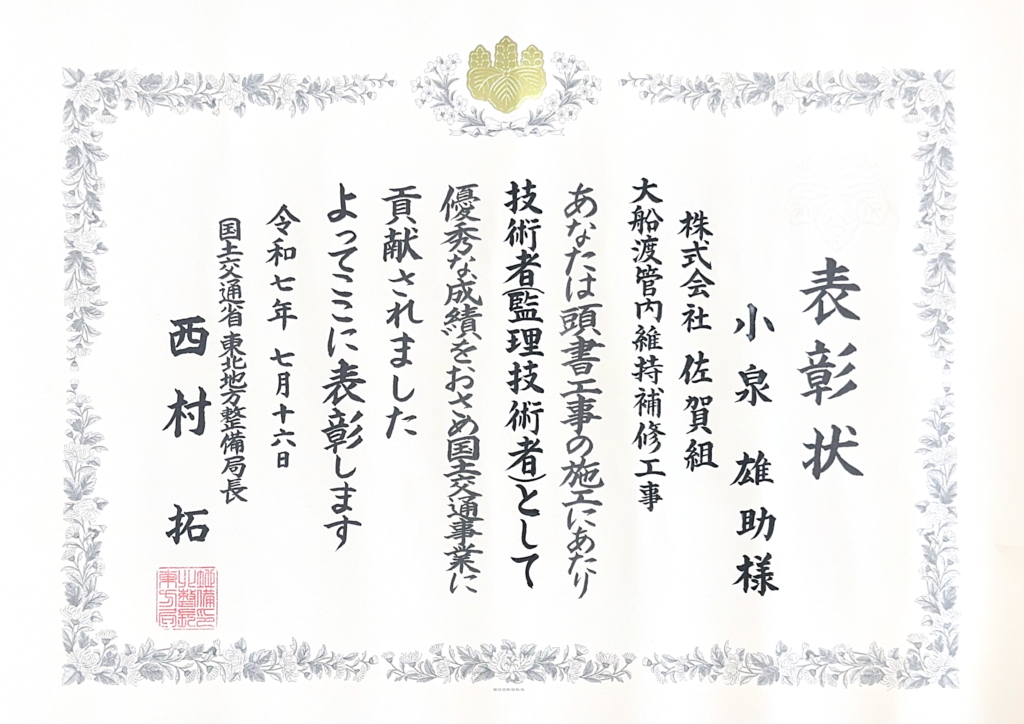 表彰状
小泉 雄助様
株式会社 佐賀組
大船渡管内維持補修工事
あなたは頭書工事の施工にあたり
技術者(監理技術者)として
優秀な成績をおさめ国土交通事業に
貢献されました
よってここに表彰します
令和七年 七月十六日
国土交通省東北地方整備局長
西村 拓